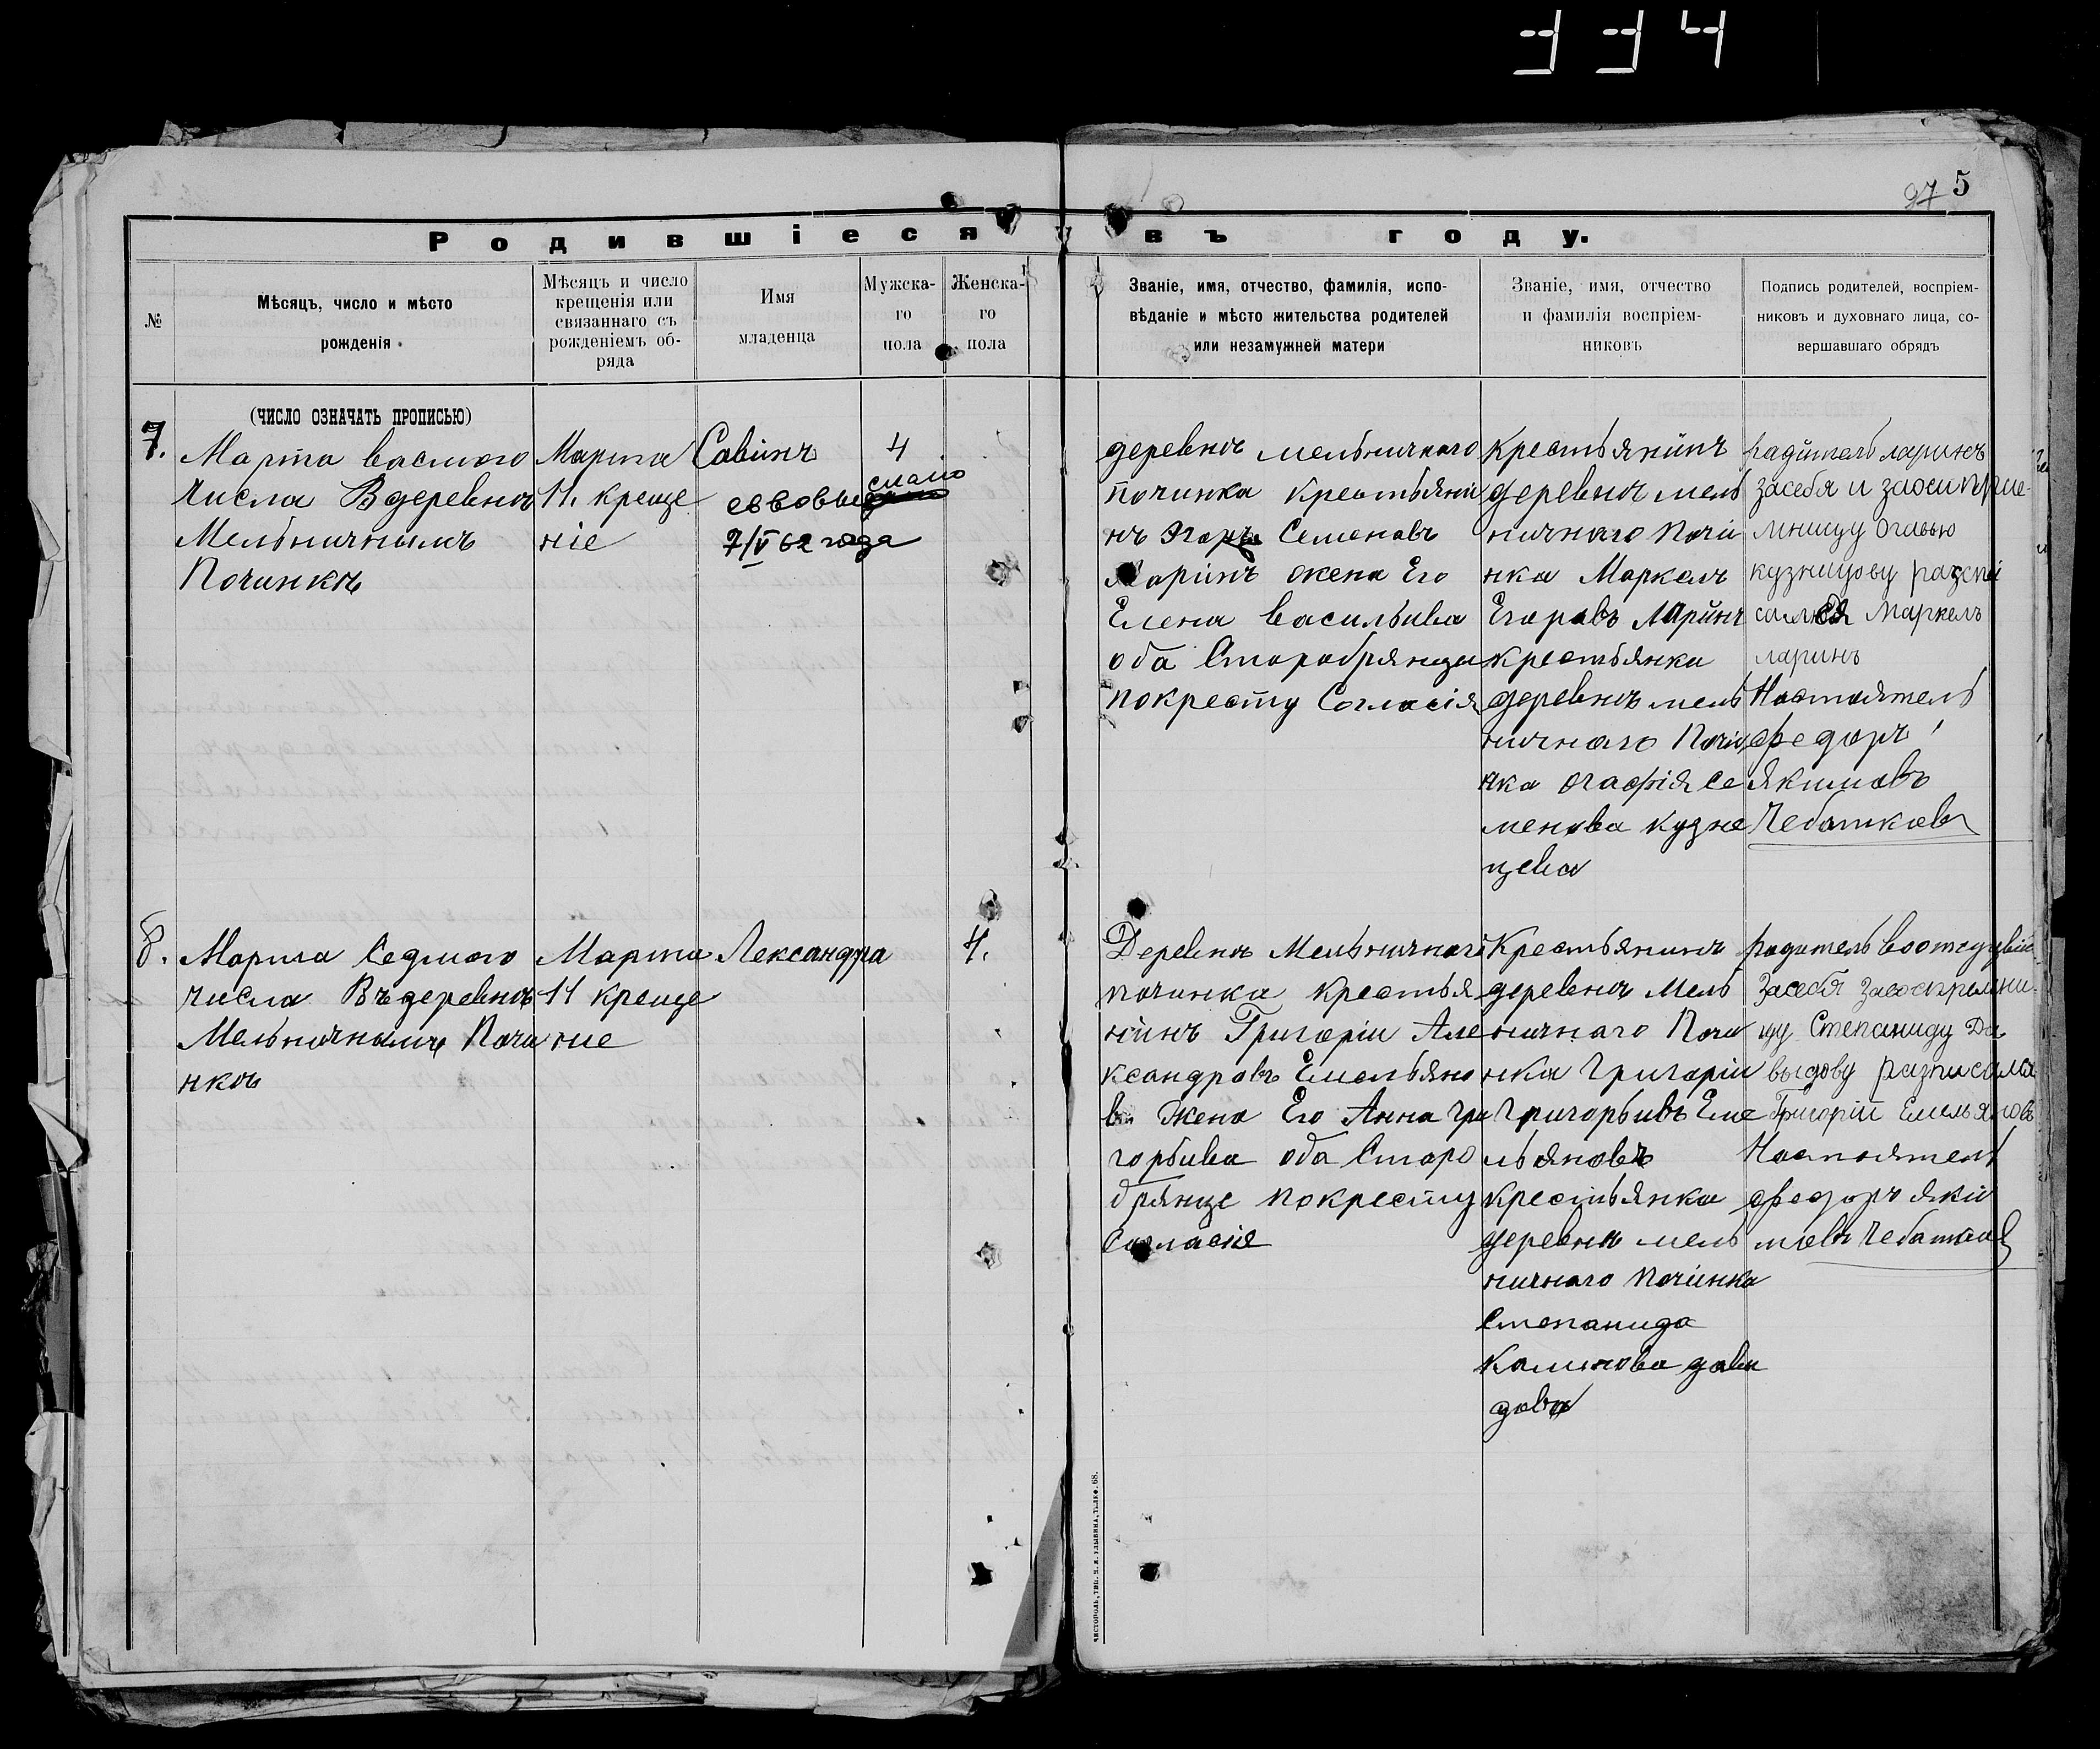 334
27 5
Родившіеся въ году.
№
Мѣсяцъ, число и мѣсто
рожденія
Мѣсяцъ и число
крещенія или
связаннаго съ
рожденіемъ об-
ряда
Имя
младенца
Мужска-
го
пола
Женска-
го
пола
Званіе, имя, отчество, фамилія, испо-
вѣданіе и мѣсто жительства родителей
или незамужней матери
Званіе, имя, отчество
и фамилія воспріем-
никовъ
Подпись родителей, воспріем-
никовъ и духовнаго лица, со-
вершавшаго обрядъ
(ЧИСЛО ОЗНАЧАТЬ ПРОПИСЬЮ)
7.
Марта васмого
числа Вдеревнѣ
Мельничнымъ
Починкѣ
Марта
11. креще
ніе
Савинъ
7/V 62 года
4
деревнѣ мельничнаго
починка крестьяни
нъ Егоръ Семеновъ
Ларинъ жена Его
Елена васильива
оба Старобрянцы
покресту Согласія
крестьянинъ
деревнѣ мель
ничнаго Почи
нка Маркелъ
Егоровъ Ларинъ
крестьянка
деревнѣ мель
ничнаго Почи
нка огафія Се
менова кузне
цева
радитель ларинъ
засебя и завоспрiе-
мницу огафью
кузницову разспи
сался Маркелъ
ларинъ
Настоятель
федоръ
Якимовъ
Чебатковъ
8.
Марта Седмого
числа Въ деревнѣ
Мельничнымъ Почи
нкѣ
Марта
11 креще
ние
Лександра
4.
Деревнѣ Мельничнаго
починка крестья
нинъ Григорій Але
ксандровъ Емельяно
въ Жена Его Анна Гри
горьива оба Старо
брянце покресту
Согласие
Крестьянинъ
деревнѣ Мель
ничнаго Почи
нка Григорій
Григорьивъ Еме
льяновъ
крестьянка
деревнѣ мель
ничнаго починка
Степанида
Калинова давы
дова
радитель
Засебя завоспремни-
цу Степаниду Да
выдову разписался
Григорій Емельяновъ
Настоятель
федоръ Яки
мовъ Чебатков
ЧИСТОПОЛЬ, ТИП.